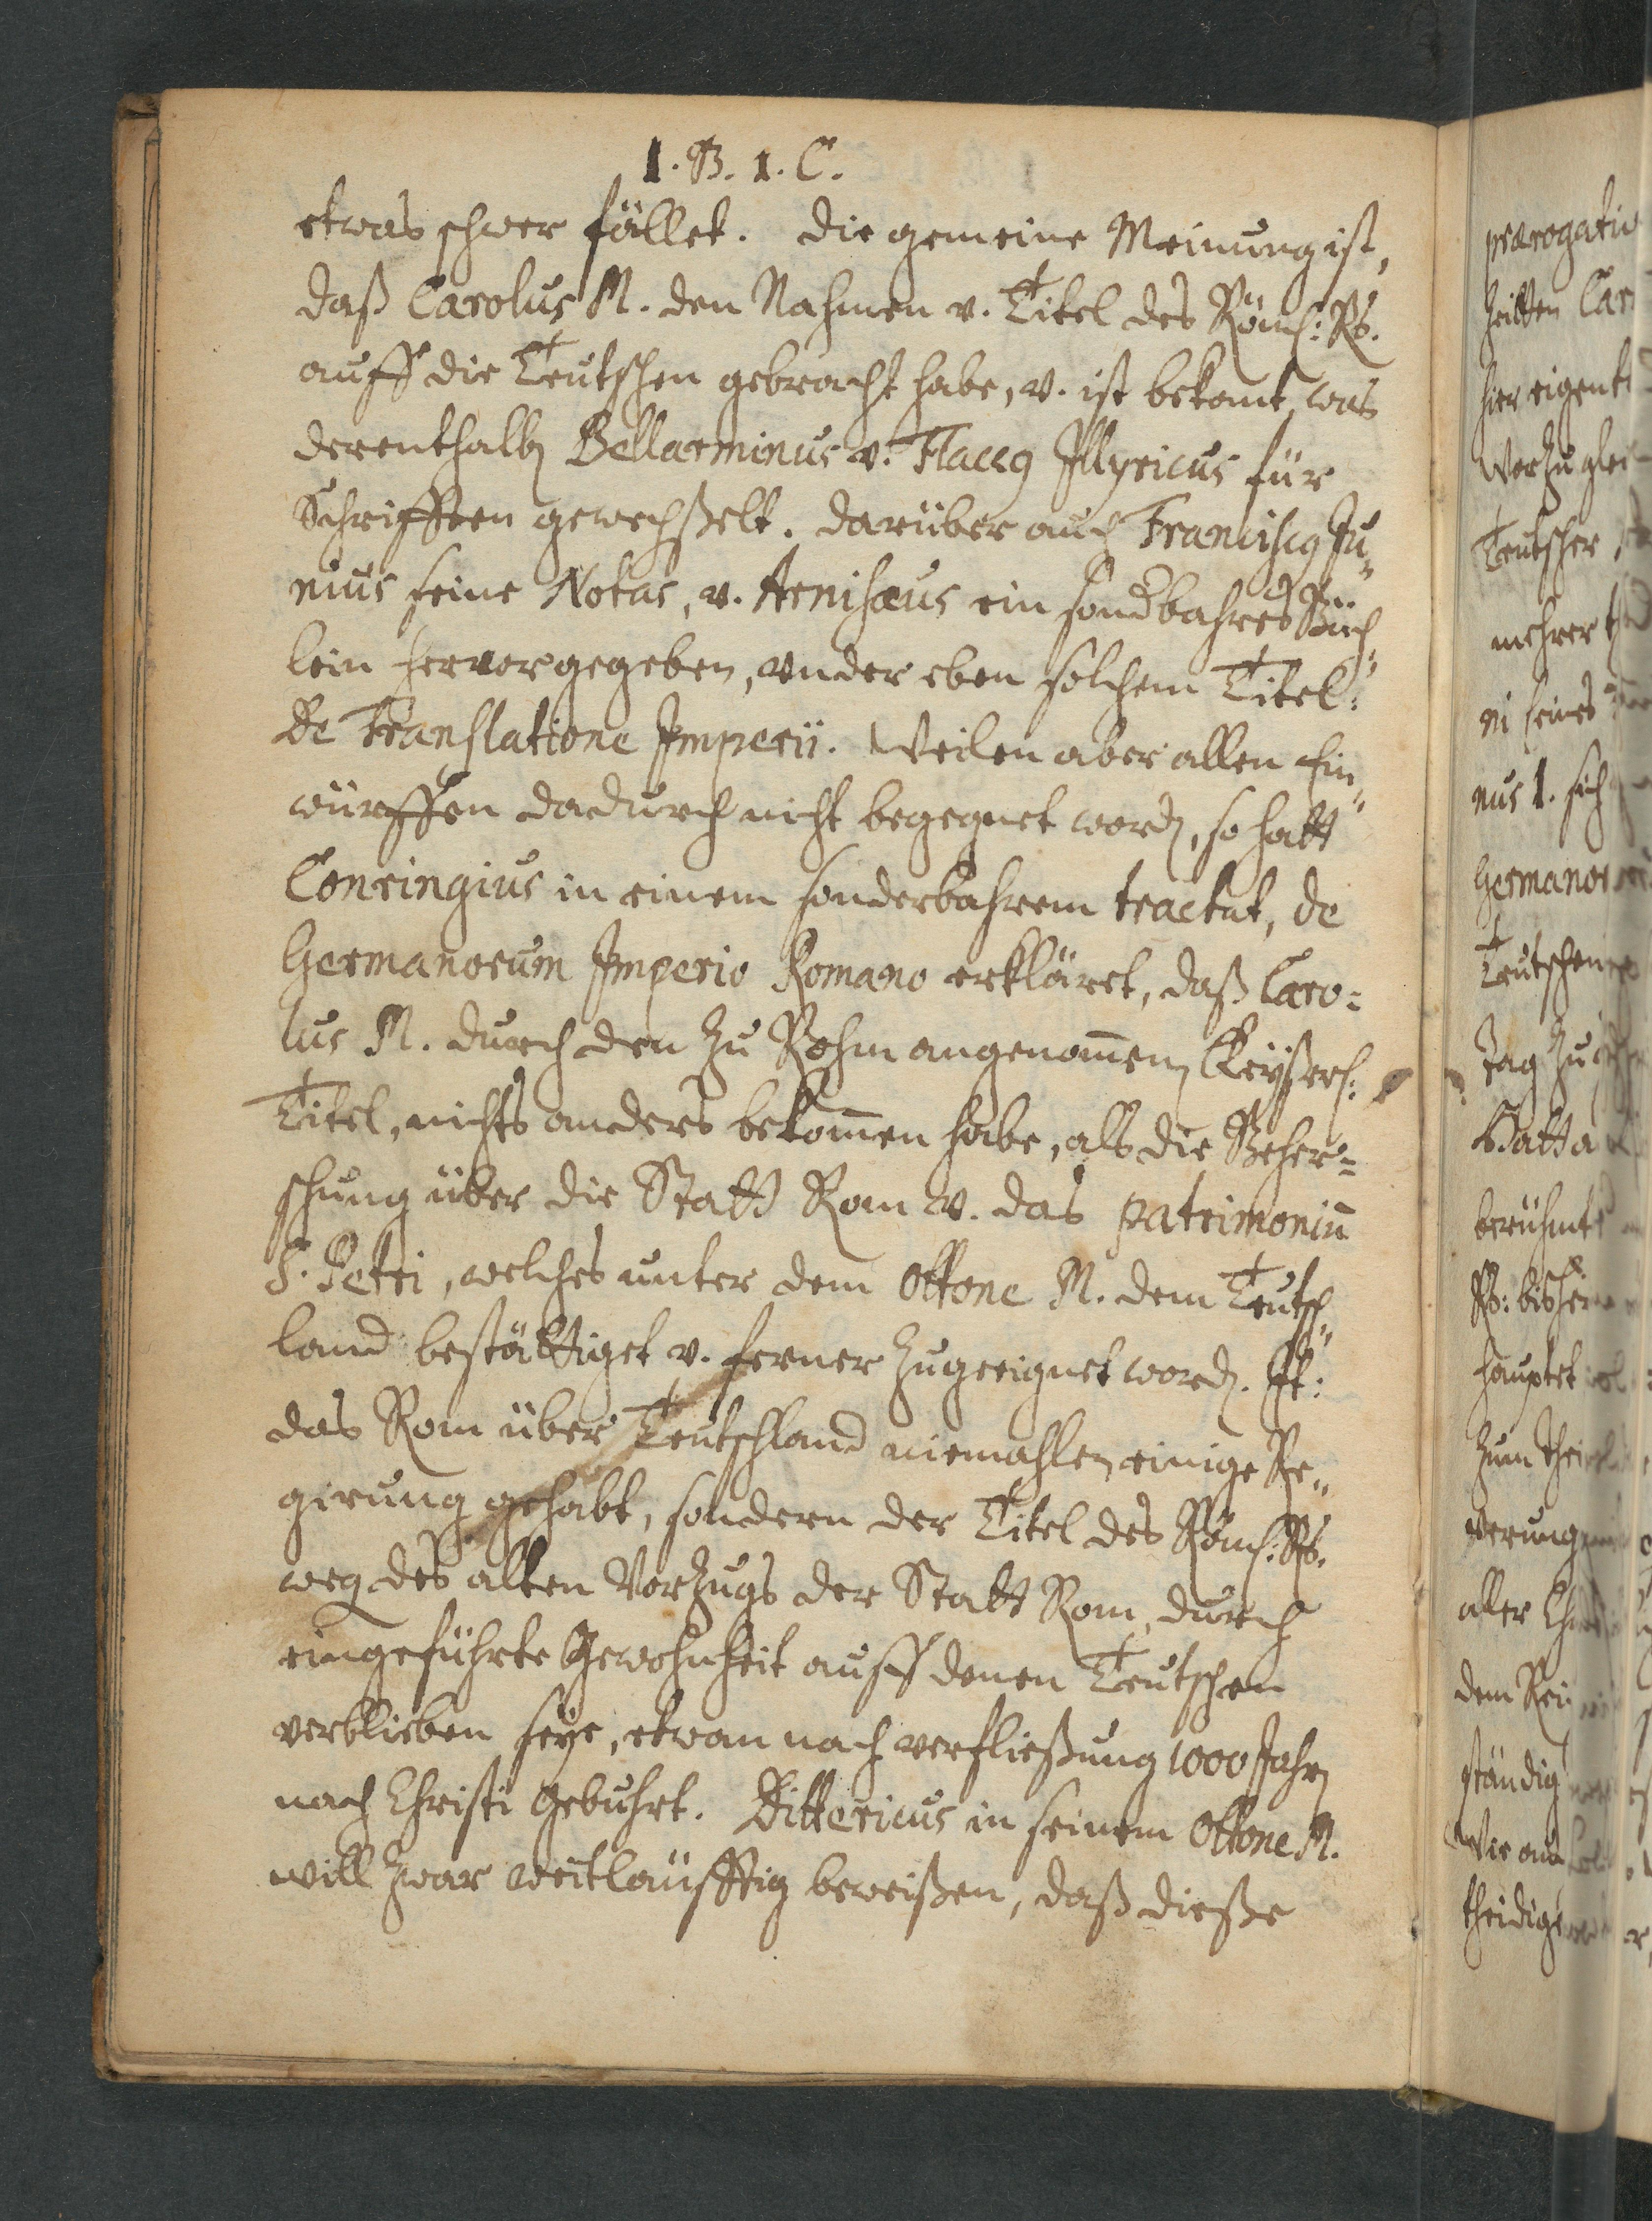 1. B. 1. C.
etwas schwer fället. Die gemeine Meinung ist,
daß Carolus M. den Nahmen v. Titel des Röm: Rs.
auff die Teutschen gebracht habe, v. ist bekomt, was
derenthalb Bellarminus v. Flacc9 Jllyricus für
Schrifften gewechßelt. Darüber auch Francisc9 Ju„
nius seine Notas, v. Arnisæus ein sondbahres Büch„
lein hervorgegeben, vnder eben solchem Titel:
De Translatione Jmperii. Weilen aber allen Ein„
würffen dadurch nicht begegnet word, so hatt
Conringius in einem sonderbahrem tractat, de
Germanorum Jmperio Romano erkläret, daß Caro=
lus M. durch den zu Rohm angenom̄en Keyßerl:
Titel, nichts anders bekom̄en habe, als die Beher=
schung über die Statt Rom v. das patrimoniū
S. Petri, welches unter dem Ottone M. dem Teutsch„
land bestättiget v. ferner zugeeignet word. It:
das Rom über Teutschland niemahlen einige Re„
girung gehabt, sondern der Titel des Röm: Rs.
weg des alten Vorzugs der Statt Rom, durch
eingeführte Gewohnheit auff denen Teutschen
verblieben seye, etwan nach verfließung 1000 Jahr
nach Christi Gebuhrt. Dittericus in seinem Ottone M.
will zwar weitläufftig beweißen, daß dieße
prærogativ
zeitten Car
hier eigent
Vorzug
Teutscher
mehrer
ni seines
nus 1. sich
Germanor
Teutschen
Tag zu
Hatto
berühmt
Rs: bisher
hauptet
zum thei
aller
dem Rei
ständig
Wie
theidig